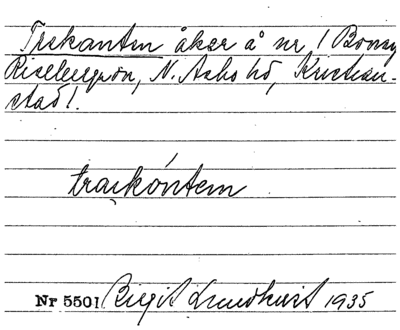 Trekanten åker å nr 1 Bonarp
Riseberga sn, N. Åsbo hd, Kristian-
stad l.
traikóntem
Nr 5501 Birgit Lundkvist 1935